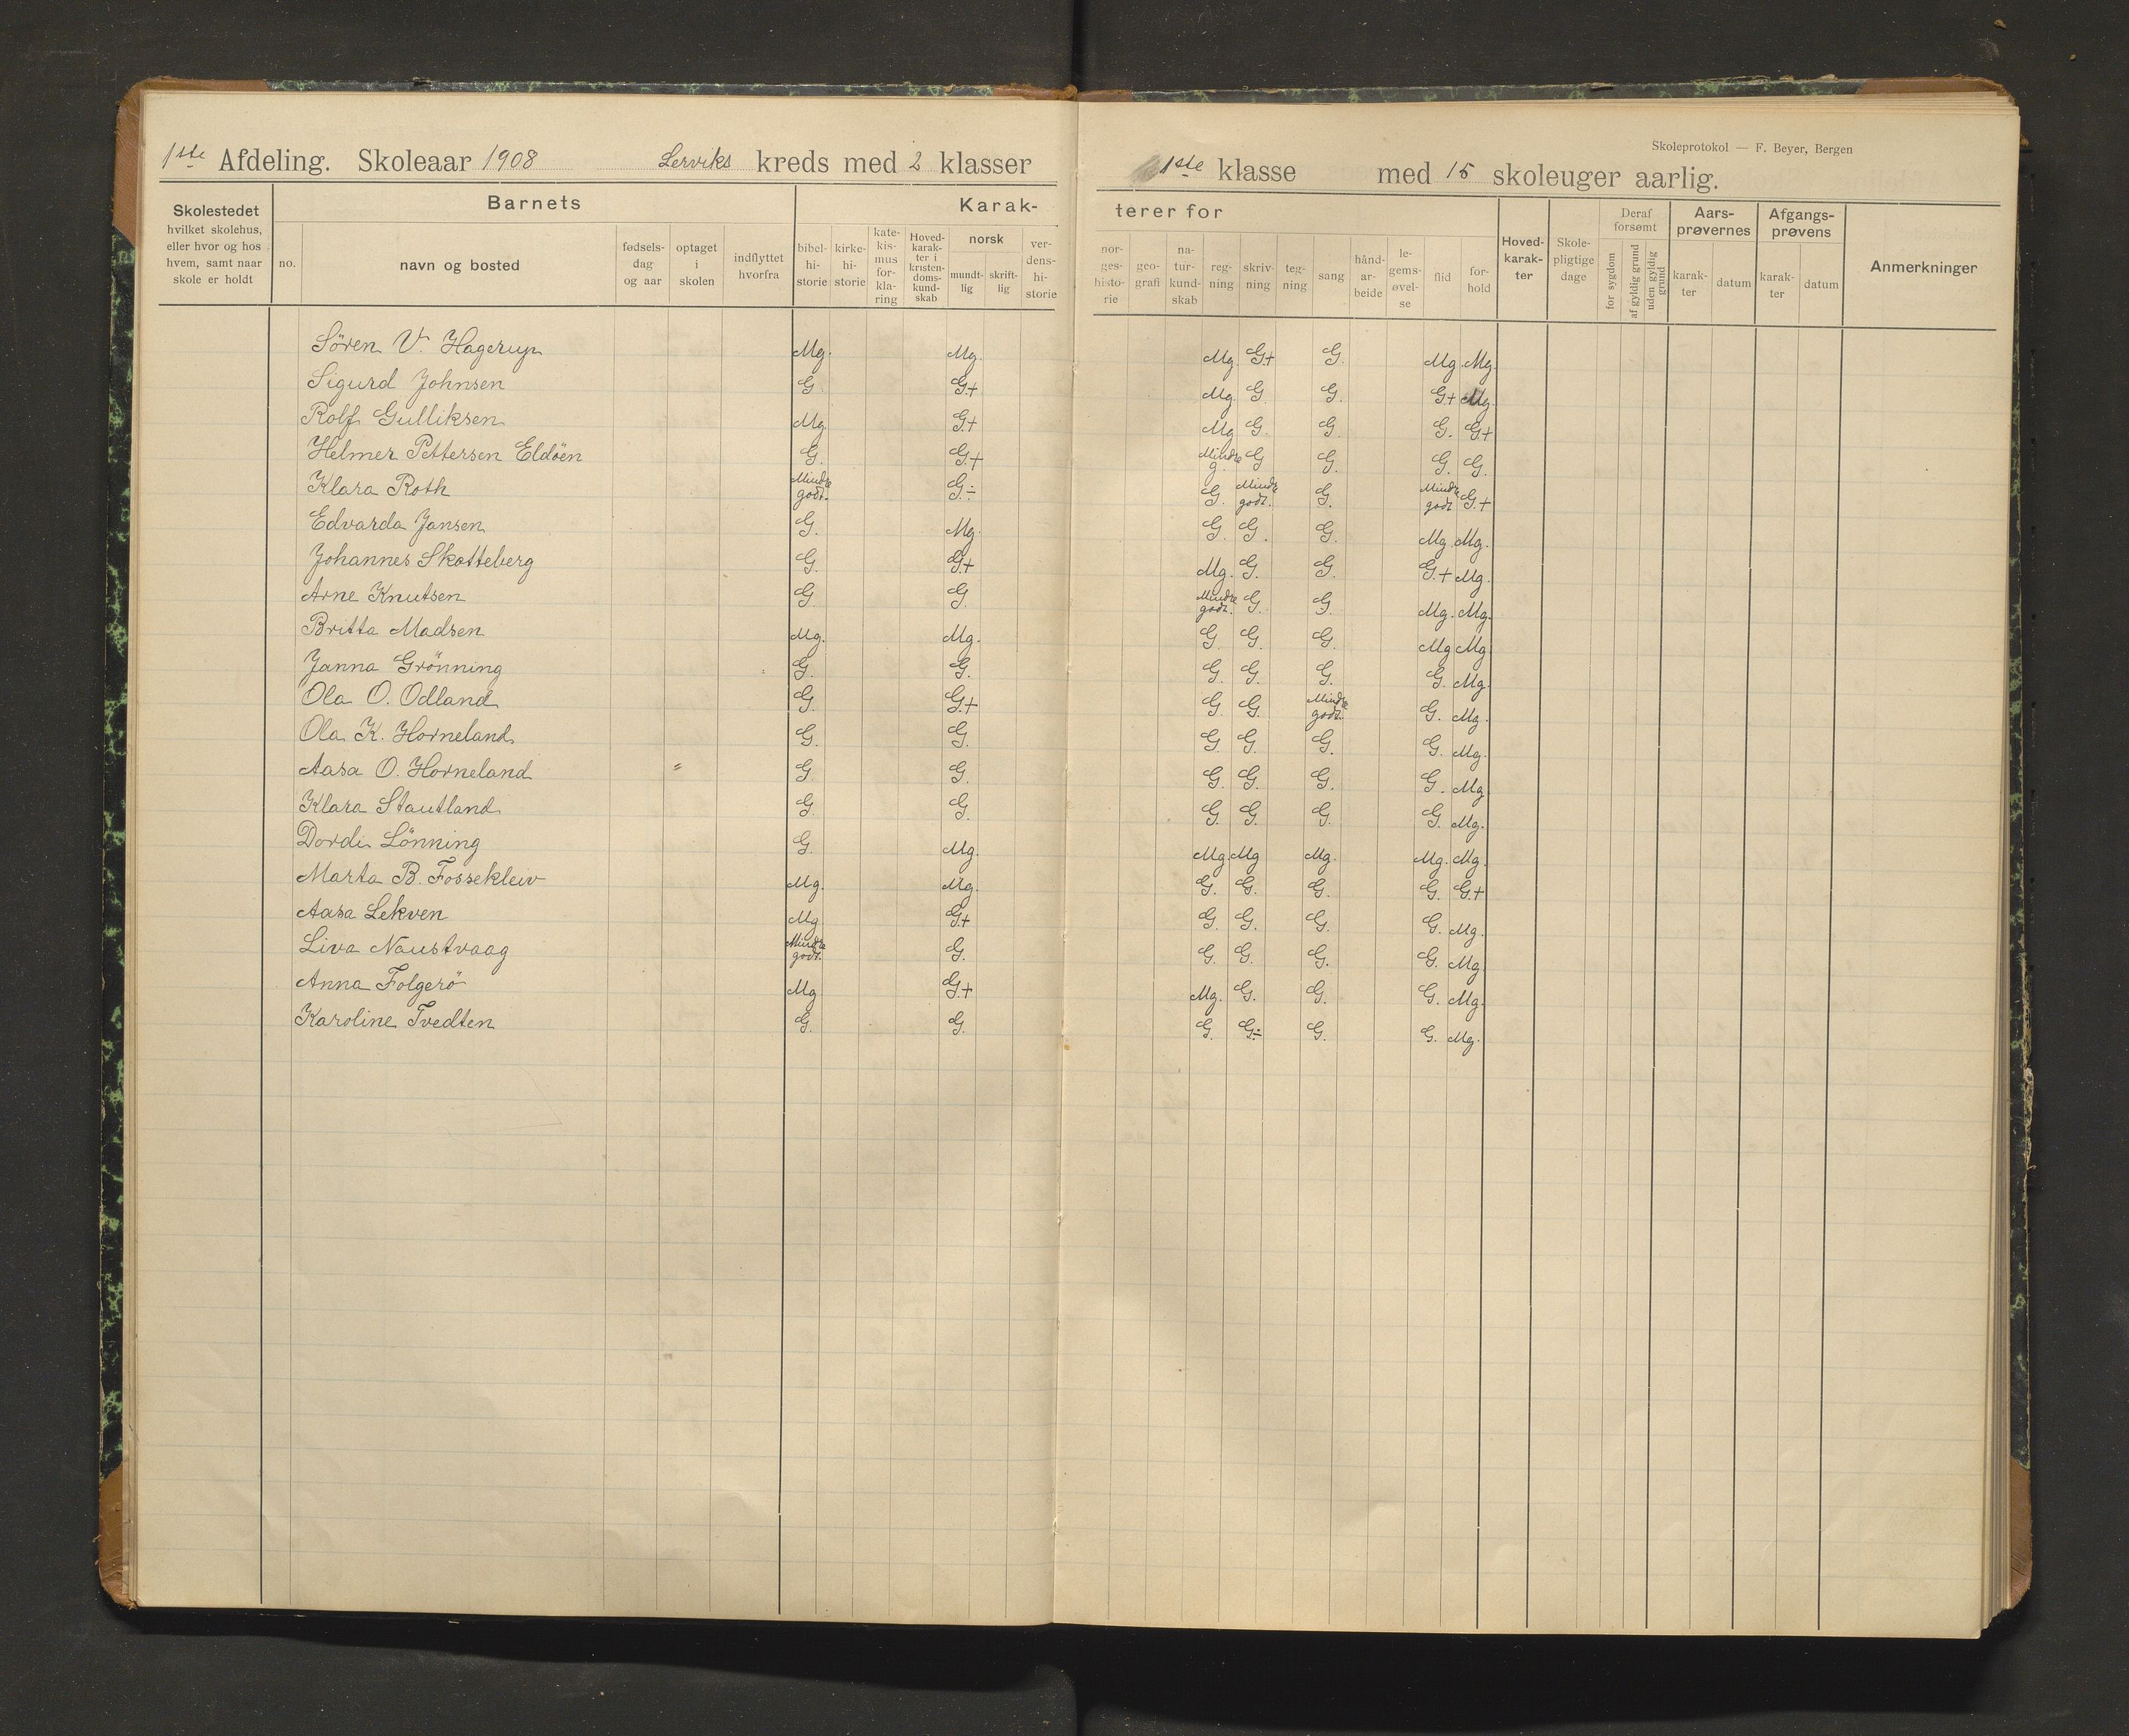 Skoleprotokol — F. Beyer, Bergen
1ste Afdeling. Skoleaar 1908 Lerviks kreds med 2 klasser 1ste klasse med 15 skoleuger aarlig.
Skolestedet hvilket skolehus, eller hvor og hos hvem, samt naar skole er holdt
Barnets
no. navn og bosted fødsels-dag og aar optaget i skolen indflyttet hvorfra
Karak-terer for
bibel-hi-storie kirke-hi-storie kate-kis-mus for-kla-ring Hoved-karak-ter i kristen-doms-kund-skab norsk mundt-lig skrift-lig ver-dens-hi-storie
nor-ges-histo-rie geo-grafi na-tur-kund-skab reg-ning skriv-ning teg-ning sang hånd-ar-beide le-gems-øvel-se flid for-hold
Hoved-karak-ter Skole-pligtige dage Deraf forsømt for sygdom af gyldig grund uden gyldig grund
Aars-prøvernes karak-ter datum Afgangs-prøvens karak-ter datum Anmerkninger
Sören V. Hagerup Mg. Mg. Mg. G+ G. Mg. Mg.
Sigurd Johnsen G. G+ Mg. G. G. G+ Mg.
Rolf Gulliksen Mg. G+ Mg. G. G. G. G+
Helmer Pettersen Eldöen G. G.+ Mindre g. G G. G. G.
Klara Roth Mindre godt. G.÷ G. Mindre godt. G. Mindre godt G.+
Edvarda Jansen G. Mg. G. G. G. Mg. Mg.
Johannes Skotteberg G. G+ Mg. G. G. G.+ Mg.
Arne Knutsen G. G. Mindre godt. G. G. Mg. Mg.
Britta Madsen Mg. Mg. G. G. G. Mg Mg
Janna Grönning G. G. G. G. G. G. Mg.
Ola O. Odland G. G+ G. G. Mindre godt. G. Mg.
Ola K. Horneland G. G. G. G. G. G. Mg.
Aasa O. Horneland = G. G. G. G. G. G. Mg.
Klara Stautland G. G. G. G. G. G. Mg.
Dordi Lönning G. Mg. Mg. Mg Mg. Mg. Mg.
Marta B. Fosseklew Mg. Mg. G. G. G. G. G+
Aasa Lekven Mg G+ G. G. G. G. Mg.
Liva Naustvaag Mindre godt. G. G. G. G. G. Mg.
Anna Folgerö Mg G+ Mg. G. G. G. Mg.
Karoline Tvedten G. G. G. G÷ G. G. Mg.